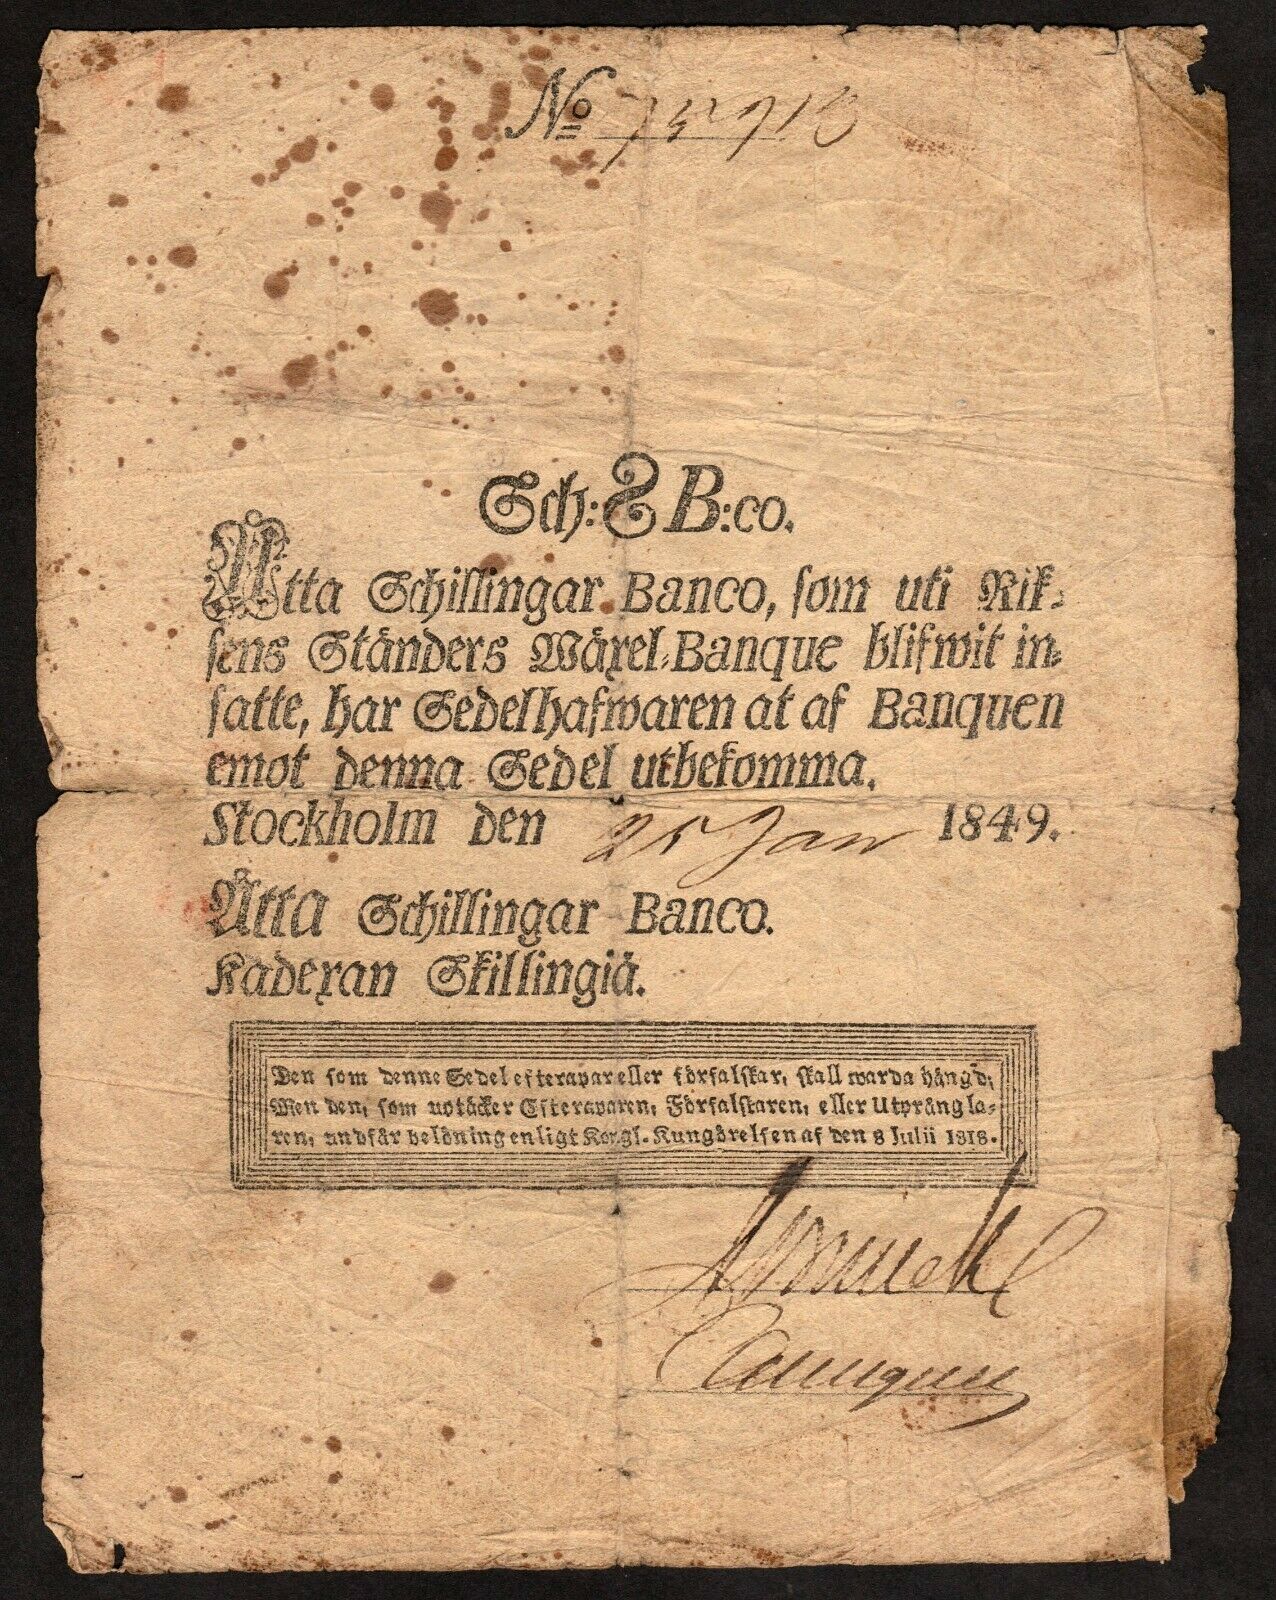 No
Sch: 8 B:co.
Åtta Schillingar Banco, som uti Rik-
sens Ständers Wäxel-Banque blifwit in-
satte, har Sedelhafwaren at af Banquen
emot denna Sedel utbekomma.
Stockholm den 25 Jan 1849.
Åtta Schillingar Banco.
Kadexan Skillingiä.
Den som denne Sedel efterapar eller förfalskar, skall warda hängd;
Men den, som uptäcker Efteraparen, Förfalskaren, eller Utprångla-
ren, undfår belöning enligt Kongl. Kungörelsen af den 8 Julii 1818.